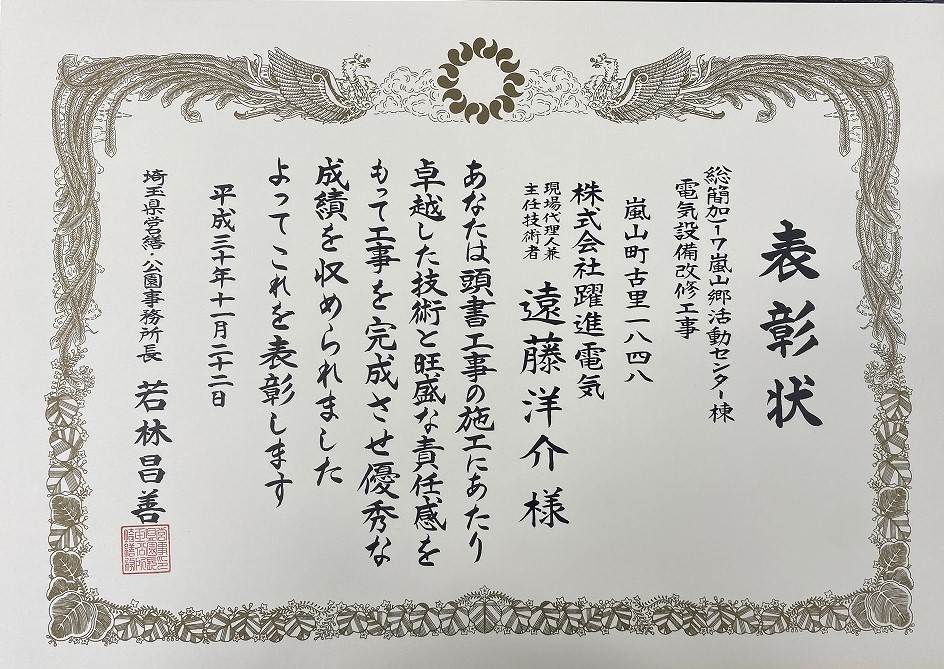 表彰状
総簡加1ー7嵐山郷活動センター棟
電気設備改修工事
嵐山町古里一八四八
株式会社躍進電気
現場代理人兼
主任技術者
遠藤洋介様
あなたは頭書工事の施工にあたり
卓越した技術と旺盛な責任感を
もって工事を完成させ優秀な
成績を収められました
よってこれを表彰します
平成三十年十一月二十二日
埼玉県営繕・公園事務所長
若林昌善